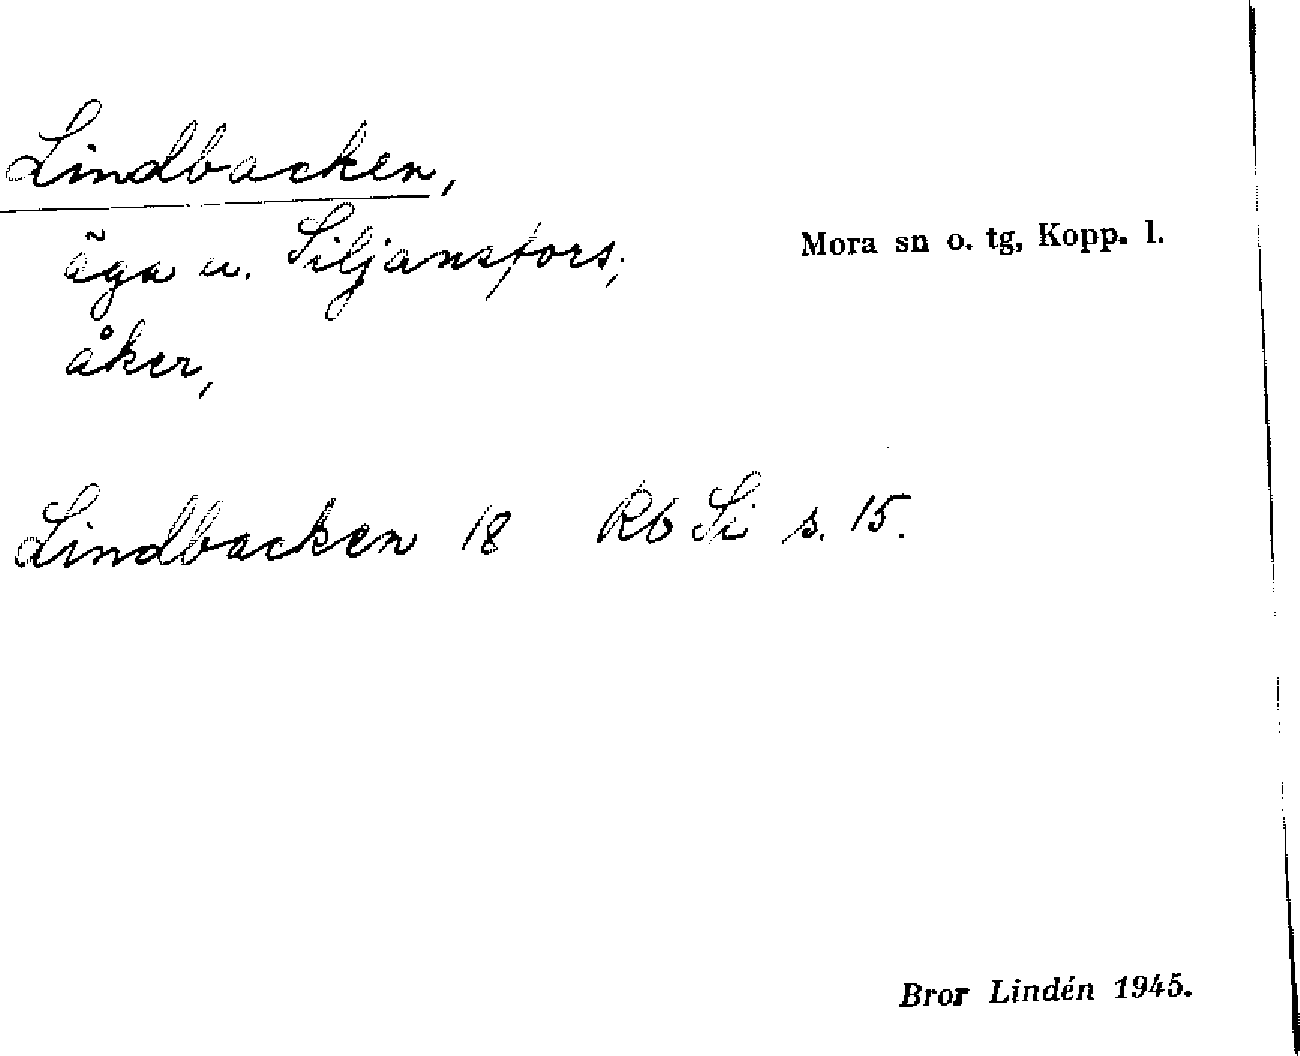 Lindbacken,
äga u. Siljansfors;
Mora sn o. tg, Kopp. l.
åker,
Lindbacken 18 Rb Si s. 15.
Bror Lindén 1945.